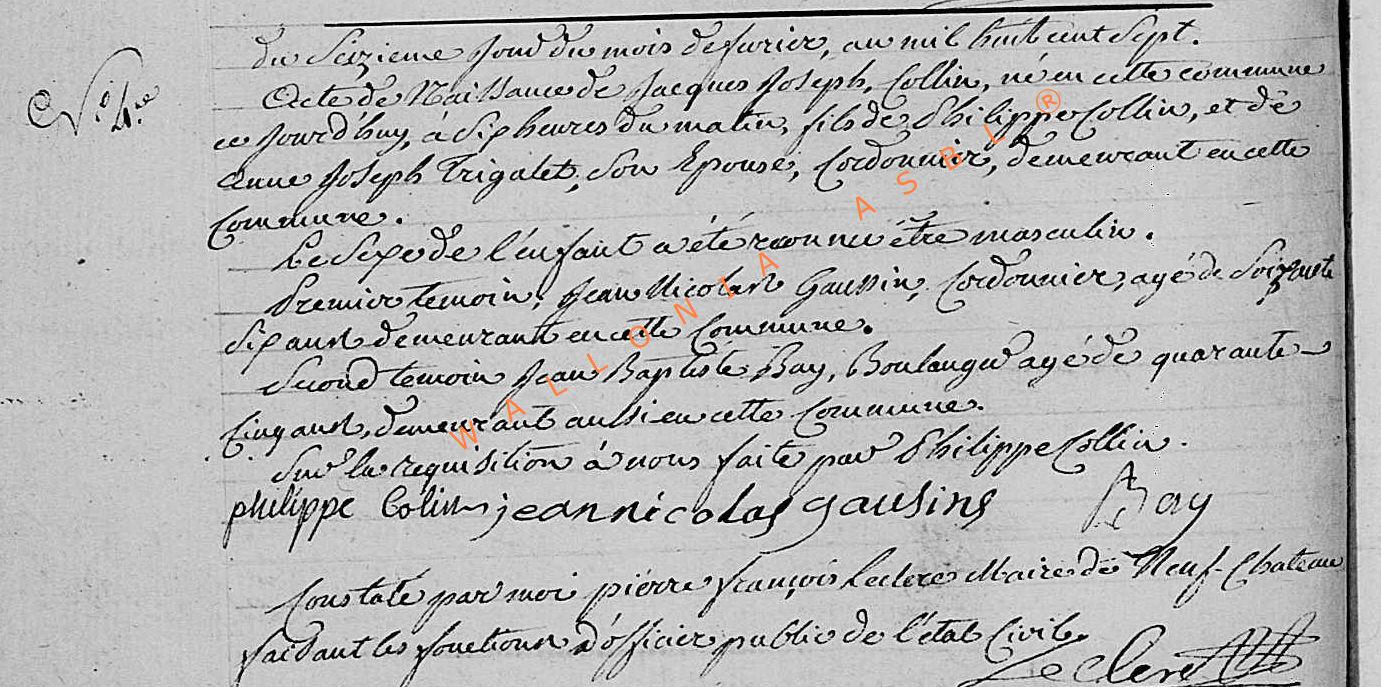 Du Seizieme Jour du mois de fevrier, an mil huit cent Sept.
N.º 4.re
Acte de Naissance de Jacques Joseph, Collin, né en cette commune
ce Jourd'huy, à Six heures du matin, fils de Philippe Collin, et de
Anne Joseph Trigalet, Son Epouse, Cordonnier, demeurant en cette
Commune.
Le Sexe de l'enfant a été reconnu être masculin.
Premier temoin, Jean Nicolas Gaussin, Cordonnier, agé de Soixante
Six ans demeurant en cette Commune.
Second temoin Jean Baptiste Bay, Boulanger agé de quarante
Cinq ans, demeurant aussi en cette Commune.
Sur la requisition à nous faite par Philippe Collin.
philippe Colin jean nicolas gausins Bay
Constaté par moi pierre françois Leclerc Maire de Neuf-Chateau
faisant les fonctions d'officier public de l'état Civil.
Leclerc
WALLONIA ASBL ®